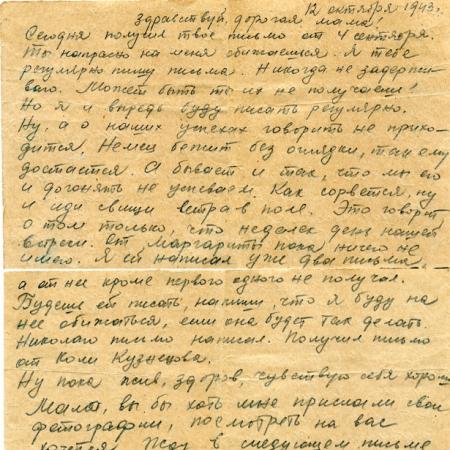 12 октября 1943г.
Здравствуй, дорогая мама!
Сегодня получил твое письмо от 4 сентября.
Ты напрасно на меня обижаешься. Я тебе
регулярно пишу письма. Никогда не задержи-
ваю. Может быть ты их не получаеш!
Но я и впредь буду писать регулярно.
Ну, а о наших успехах говорить не прихо-
дится. Немец бежит без оглядки, так ему
достается. А бывает и так, что мы его
и догонять не успеваем. Как сорвется, ну
и ищи свищи ветра в поле. Это говорит
о том только, что недалек день нашей
встречи. От Маргариты пока ничего не
имею. Я ей написал уже два письма,
а от нее кроме первого одного не получал.
Будеш ей писать, напиши, что я буду на
нее обижаться, если она будет так делать.
Николаю письмо написал. Получил письмо
от Коли Кузнецова.
Ну пока жив, здоров, чувствую себя хорошо
Мама, вы бы хоть мне прислали свои
фотографии, посмотреть на вас
хочется. Жду в следующем письме